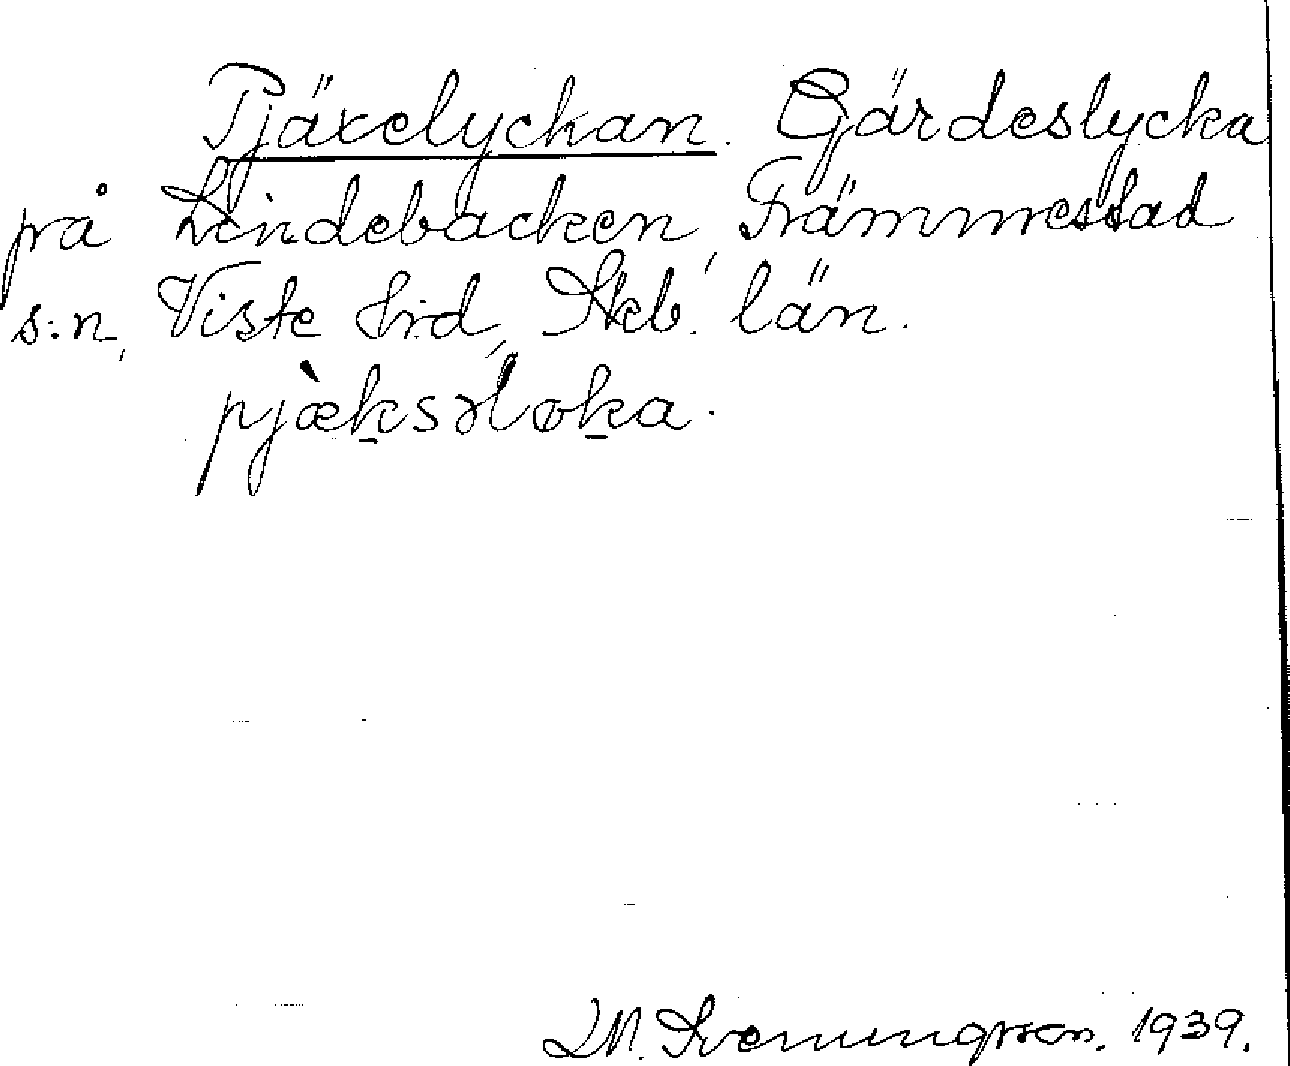 Pjäxelyckan. Gärdeslycka
på Lindebacken, Främmestad
s:n, Viste hrd, Skb. län.
pjæ̀ksəløka.
Svenungsson. 1939.